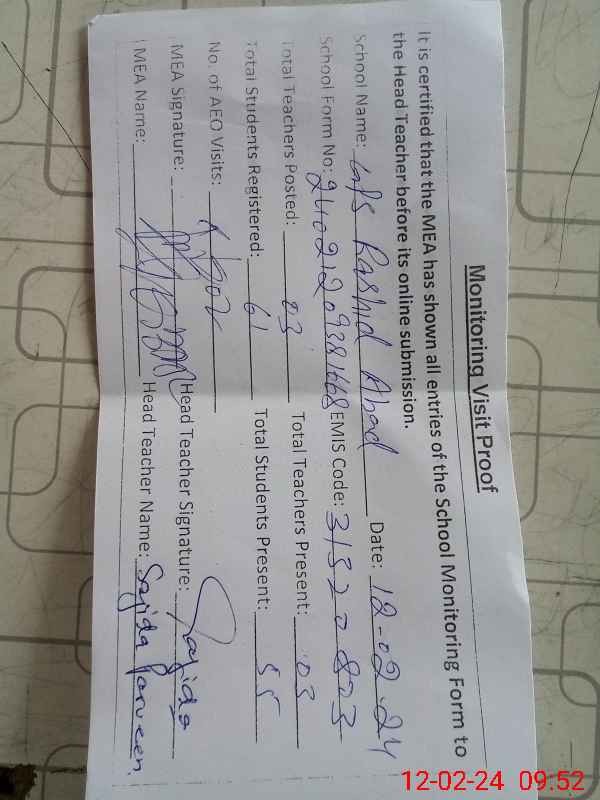 Monitoring Visit Proof
It is certified that the MEA has shown all entries of the School Monitoring Form to
the Head Teacher before its online submission.
School Name: Rashid Abad Date: 12-02-24
School Form No: EMIS Code: 31320803
Total Teachers Posted: 03 Total Teachers Present: 03
Total Students Registered: 61 Total Students Present: 55
No. of AEO Visits:
MEA Signature: Head Teacher Signature: Sajida
MEA Name: Head Teacher Name: Sajida Parveen
12-02-24 09:52